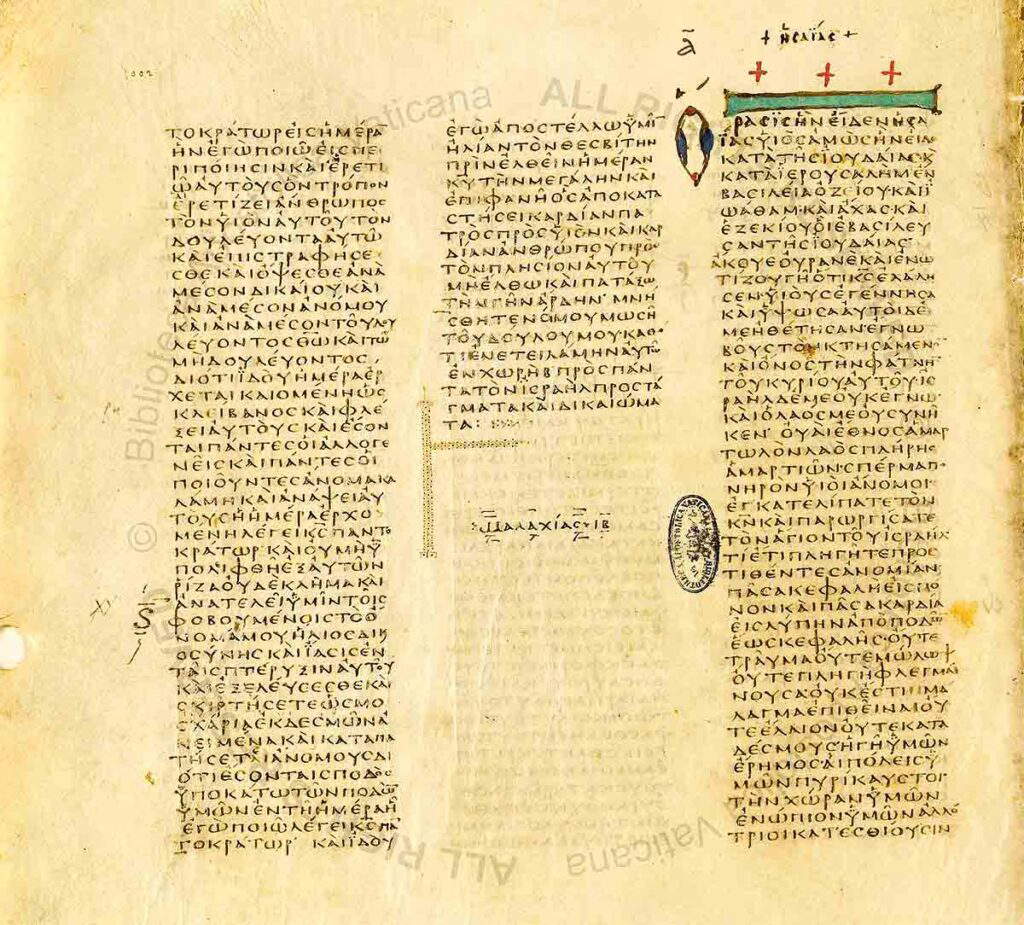 Α
+ ΗϹΑΙΑϹ +
ΤΟΚΡΑΤΩΡΕΙϹΗΜΕΡΑ
ΗΝΕΓΩΠΟΙΩΕΙϹΠΕ
ΡΙΠΟΙΗϹΙΝΚΑΙΕΡΕΤΙ
ΩΑΥΤΟΥϹΟΝΤΡΟΠΟΝ
ΕΡΕΤΙΖΕΙΑΝΘΡΩΠΟϹ
ΤΟΝΥΙΟΝΑΥΤΟΥΤΟΝ
ΔΟΥΛΕΥΟΝΤΑΑΥΤΩ
ΚΑΙΕΠΙϹΤΡΑΦΗϹΕ
ϹΘΕΚΑΙΟΨΕϹΘΕΑΝΑ
ΜΕϹΟΝΔΙΚΑΙΟΥΚΑΙ
ΑΝΑΜΕϹΟΝΑΝΟΜΟΥ
ΚΑΙΑΝΑΜΕϹΟΝΤΟΥΔΟΥ
ΛΕΥΟΝΤΟϹΘΩΚΑΙΤΟΥ
ΜΗΔΟΥΛΕΥΟΝΤΟϹ
ΔΙΟΤΙΪΔΟΥΗΜΕΡΑΕΡ
ΧΕΤΑΙΚΑΙΟΜΕΝΗΩϹ
ΚΛΕΙΒΑΝΟϹΚΑΙΦΛΕ
ΞΕΙΑΥΤΟΥϹΚΑΙΕϹΟΝ
ΤΑΙΠΑΝΤΕϹΟΙΑΛΛΟΓΕ
ΝΕΙϹΚΑΙΠΑΝΤΕϹΟΙ
ΠΟΙΟΥΝΤΕϹΑΝΟΜΑΚΑ
ΛΑΜΗΚΑΙΑΝΑΨΕΙΑΥ
ΤΟΥϹΗΗΜΕΡΑΕΡΧΟ
ΜΕΝΗΛΕΓΕΙΚϹΠΑΝΤΟ
ΚΡΑΤΩΡΚΑΙΟΥΜΗΫ
ΠΟΛΙΦΘΗΕΞΑΥΤΩΝ
ΡΙΖΑΟΥΔΕΚΛΗΜΑΚΑΙ
ΑΝΑΤΕΛΕΙΫΜΙΝΤΟΙϹ
ΦΟΒΟΥΜΕΝΟΙϹΤΟΟ
ΝΟΜΑΜΟΥΗΛΙΟϹΔΙΚΑΙ
ΟϹΥΝΗϹΚΑΙΪΑϹΙϹΕΝ
ΤΑΙϹΠΤΕΡΥΞΙΝΑΥΤΟΥ
ΚΑΙΕΞΕΛΕΥϹΕϹΘΕΚΑΙ
ϹΚΙΡΤΗϹΕΤΕΩϹΜΟ
ϹΧΑΡΙΑΕΚΔΕϹΜΩΝΑ
ΝΕΙΜΕΝΑΚΑΙΚΑΤΑΠΑ
ΤΗϹΕΤΑΙΑΝΟΜΟΥϹΔΙ
ΟΤΙΕϹΟΝΤΑΙϹΠΟΔΟϹ
ΫΠΟΚΑΤΩΤΩΝΠΟΔΩΝ
ΫΜΩΝΕΝΤΗΗΜΕΡΑΗ
ΕΓΩΠΟΙΩΛΕΓΕΙΚϹΠΑ
ΤΟΚΡΑΤΩΡ ΚΑΙΪΔΟΥ
ΕΓΩΑΠΟϹΤΕΛΛΩΫΜΙ
ΗΛΙΑΝΤΟΝΘΕϹΒΙΤΗΝ
ΠΡΙΝΕΛΘΕΙΝΗΜΕΡΑΝ
ΚΥΤΗΝΜΕΓΑΛΗΝΚΑΙ
ΕΠΙΦΑΝΗΟϹΑΠΟΚΑΤΑ
ϹΤΗϹΕΙΚΑΡΔΙΑΝΠΑ
ΤΡΟϹΠΡΟϹΥΙΟΝΚΑΙΚΑΡ
ΔΙΑΝΑΝΘΡΩΠΟΥΠΡΟϹ
ΤΟΝΠΛΗϹΙΟΝΑΥΤΟΥ
ΜΗΕΛΘΩΚΑΙΠΑΤΑΞΩ
ΤΗΝΓΗΝΑΡΔΗΝ ΜΝΗ
ϹΘΗΤΕΝΟΜΟΥΜΩϹΗ
ΤΟΥΔΟΥΛΟΥΜΟΥΚΑΘΟ
ΤΙΕΝΕΤΕΙΛΑΜΗΝΑΥΤΩ
ΕΝΧΩΡΗΒΠΡΟϹΠΑΝ
ΤΑΤΟΝΙϹΡΑΗΛΠΡΟϹΤΑ
ΓΜΑΤΑΚΑΙΔΙΚΑΙΩΜΑ
ΤΑ:
ΜΑΛΑΧΙΑϹ ΙΒ
ΟΡΑϹΙϹΗΝΕΙΔΕΝΗϹΑ
ΪΑϹΥΙΟϹΑΜΩϹΗΝΕΙΔΕ
ΚΑΤΑΤΗϹΙΟΥΔΑΙΑϹΚ
ΚΑΤΑΪΕΡΟΥϹΑΛΗΜΕΝ
ΒΑϹΙΛΕΙΑΟΖΕΙΟΥΚΑΙΪ
ΩΑΘΑΜΚΑΙΑΧΑΖΚΑΙ
ΕΖΕΚΙΟΥΟΙΕΒΑϹΙΛΕΥ
ϹΑΝΤΗϹΪΟΥΔΑΙΑϹ
ΑΚΟΥΕΟΥΡΑΝΕΚΑΙΕΝΩ
ΤΙΖΟΥΓΗΟΤΙΚϹΕΛΑΛΗ
ϹΕΝΥΙΟΥϹΕΓΕΝΝΗϹΑ
ΚΑΙΫΨΩϹΑΑΥΤΟΙΔΕ
ΜΕΗΘΕΤΗϹΑΝΕΓΝΩ
ΒΟΥϹΤΟΝΚΤΗϹΑΜΕΝ
ΚΑΙΟΝΟϹΤΗΝΦΑΤΝΗ
ΤΟΥΚΥΡΙΟΥΑΥΤΟΥΪϹ
ΡΑΗΛΔΕΜΕΟΥΚΕΓΝΩ
ΚΑΙΟΛΑΟϹΜΕΟΥϹΥΝΗ
ΚΕΝ ΟΥΑΙΕΘΝΟϹΑΜΑΡ
ΤΩΛΟΝΛΑΟϹΠΛΗΡΗϹ
ΑΜΑΡΤΙΩΝϹΠΕΡΜΑΠΟ
ΝΗΡΟΝΥΙΟΙΑΝΟΜΟΙ
ΕΓΚΑΤΕΛΙΠΑΤΕΤΟΝ
ΚΝΚΑΙΠΑΡΩΡΓΙϹΑΤΕ
ΤΟΝΑΓΙΟΝΤΟΥΙϹΡΑΗΛ
ΤΙΕΤΙΠΛΗΓΗΤΕΠΡΟϹ
ΤΙΘΕΝΤΕϹΑΝΟΜΙΑΝ
ΠΑϹΑΚΕΦΑΛΗΕΙϹΠΟ
ΝΟΝΚΑΙΠΑϹΑΚΑΡΔΙΑ
ΕΙϹΛΥΠΗΝΑΠΟΠΟΔΩ
ΕΩϹΚΕΦΑΛΗϹΟΥΤΕ
ΤΡΑΥΜΑΟΥΤΕΜΩΛΩΨ
ΟΥΤΕΠΛΗΓΗΦΛΕΓΜΑΙ
ΝΟΥϹΑΟΥΚΕϹΤΙΜΑ
ΛΑΓΜΑΕΠΙΘΕΙΝΑΙΟΥ
ΤΕΕΛΑΙΟΝΟΥΤΕΚΑΤΑ
ΔΕϹΜΟΥϹΗΓΗΫΜΩΝ
ΕΡΗΜΟϹΑΙΠΟΛΕΙϹΫ
ΜΩΝΠΥΡΙΚΑΥϹΤΟΙ
ΤΗΝΧΩΡΑΝΫΜΩΝ
ΕΝΩΠΙΟΝΫΜΩΝΑΛΛΟ
ΤΡΙΟΙΚΑΤΕϹΘΙΟΥϹΙΝ
© Biblioteca
Vaticana
ALL RI
ALL RI
Vaticana